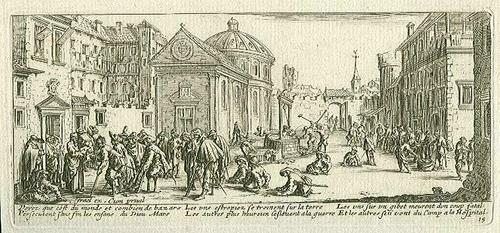 Israel ex. Cum privil
Voyez que c'est du monde et combien de hazars
Persecutent sans fin les enfans du Dieu Mars
Les uns estropiez se treinent sur la terre
Les autres plus heureux s'eslèvent a la guerre
Les uns sur un gibet meurent d'un coup fatal
Et les autres s'en vont du Camp a la Hospital